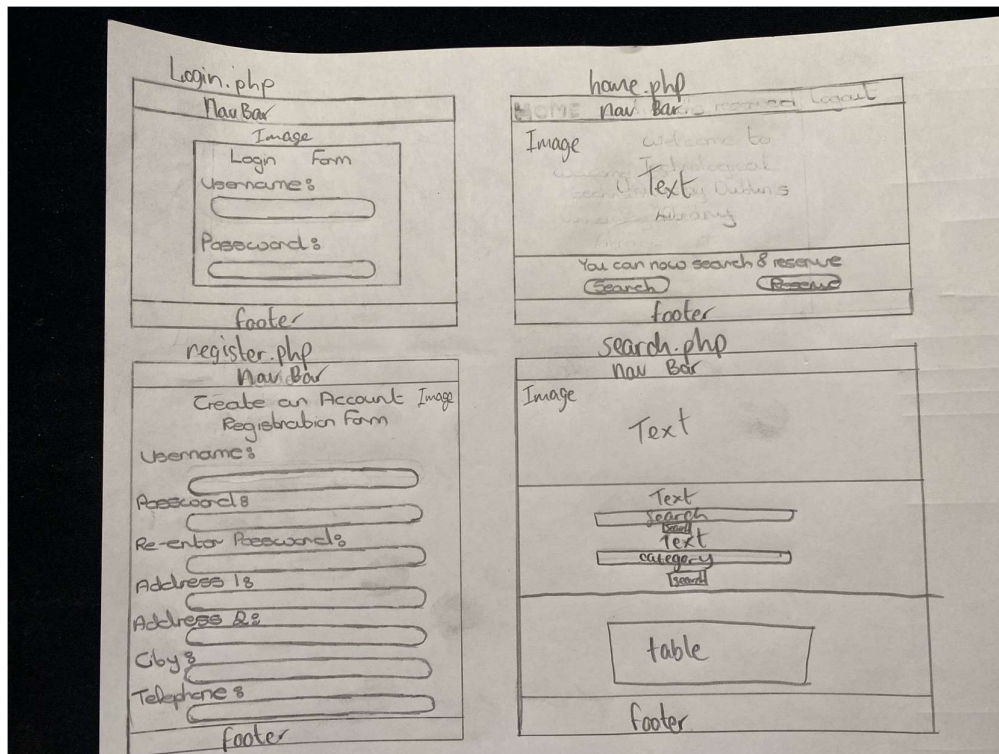 Login.php
Nav Bar
Image
Login Form
Username:
Password:
footer
home.php
HOME Nav Bar reserved Logout
Image
Welcome to
Technological
Text
Dublin's
Library
You can now search & reserve
Search Reserve
footer
register.php
Nav Bar
Create an Account Image
Registration Form
Username:
Password:
Re-enter Password:
Address 1:
Address 2:
City:
Telephone:
footer
search.php
Nav Bar
Image
Text
Text
search
search
Text
category
search
table
footer